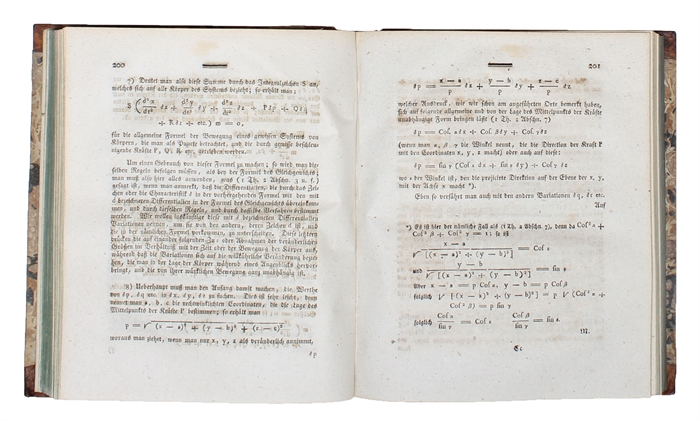 200
7) Deutet man also diese Summe durch das Integralzeichen S an,
welches sich auf alle Körper des Systems bezieht; so erhält man;
S (d²x/dt² δx + d²y/dt² δy + d²z/dt² δz + Pδp + Qδq
+ Rδr + etc.) m = 0,
für die allgemeine Formel der Bewegung eines gewissen Systems von
Körpern, die man als Punkte betrachtet, und die durch gewisse beschleu-
nigende Kräfte P, Q, R etc. getrieben werden.
Um einen Gebrauch von dieser Formel zu machen; so wird man die-
selben Regeln befolgen müssen, als bei der Formel des Gleichgewichts;
man muß also hier alles anwenden, was (1 Th. 2 Abschn. 3 u. f.)
gesagt ist, wenn man anmerkt, daß die Differentialien, die durch das Zei-
chen oder die Characteristik d in der vorhergehenden Formel mit den mit
d bezeichneten Differentialien in der Formel des Gleichgewichts übereinkom-
men, und durch dieselben Regeln, und durch dasselbe Verfahren bestimmt
werden. Wir wollen inskünftige diese mit δ bezeichneten Differentialien
Variationen nennen, um sie von den andern, deren Zeichen d ist, und
die in der nämlichen Formel vorkommen, zu unterscheiden. Diese letztern
drücken die auf einander folgenden Zu- oder Abnahmen der veränderlichen
Größen im Verhältniß mit der Zeit oder der Bewegung der Körper aus,
während daß die Variationen sich auf die willkührliche Veränderung bezie-
hen, die man in der Lage der Körper während eines Augenblicks hervor-
bringt, und die von ihrer würklichen Bewegung ganz unabhängig ist.
8) Ueberhaupt muß man den Anfang damit machen, die Werthe
von δp, δq etc. in δx, δy, δz zu suchen. Dies ist sehr leicht, denn
nennet man a, b, c die rechtwinklichten Coordinaten, die die Lage des
Mittelpunkts der Kräfte P bestimmen; so erhält man
p = √(x — a)² + (y — b)² + (z — c)²
woraus man ziehet, wenn man nur x, y, z als veränderlich annimmt,
δp
201
δp = x — a/p δx + y — b/p δy + z — c/p δz
welcher Ausdruck, wie wir schon am angeführten Orte bemerkt haben,
sich auf folgende allgemeine und von der Lage des Mittelpunkts der Kräfte
unabhängige Form bringen läßt (1 Th. 2 Abschn. 7)
δp = Cof. α δx + Cof. β δy + Cof. γ δz
(wenn man α, β γ die Winkel nennt, die die Direction der Kraft P
mit den Coordinaten x, y, z macht) oder auch auf diese:
δp = sin γ (Cof ε δx + sin ε δy) + Cof γ δz
wo ε der Winkel ist, den die projicirte Direktion auf der Ebene der x, y,
mit der Achse x macht *).
Eben so verfährt man auch mit den andern Variationen δq, δr etc.
Auf
*) Es ist hier der nämliche Fall als (1 Th. 2 Abschn. 7), denn da Cof² α +
Cof² β + Cof² γ = 1; so ist
x — a/√[(x — a)² + (y — b)²] = Cof ε
und y — b/√[(x — a)² + (y — b)²] = sin ε
Aber x — a = p Cof α, y — b = p Cof β
folglich √[(x — a)² + (y — b)²] = p √(Cof² α +
Cof² β) = p sin γ
folglich Cof α/sin γ = Cof ε, Cof β/sin γ = sin ε.
M.
Cc